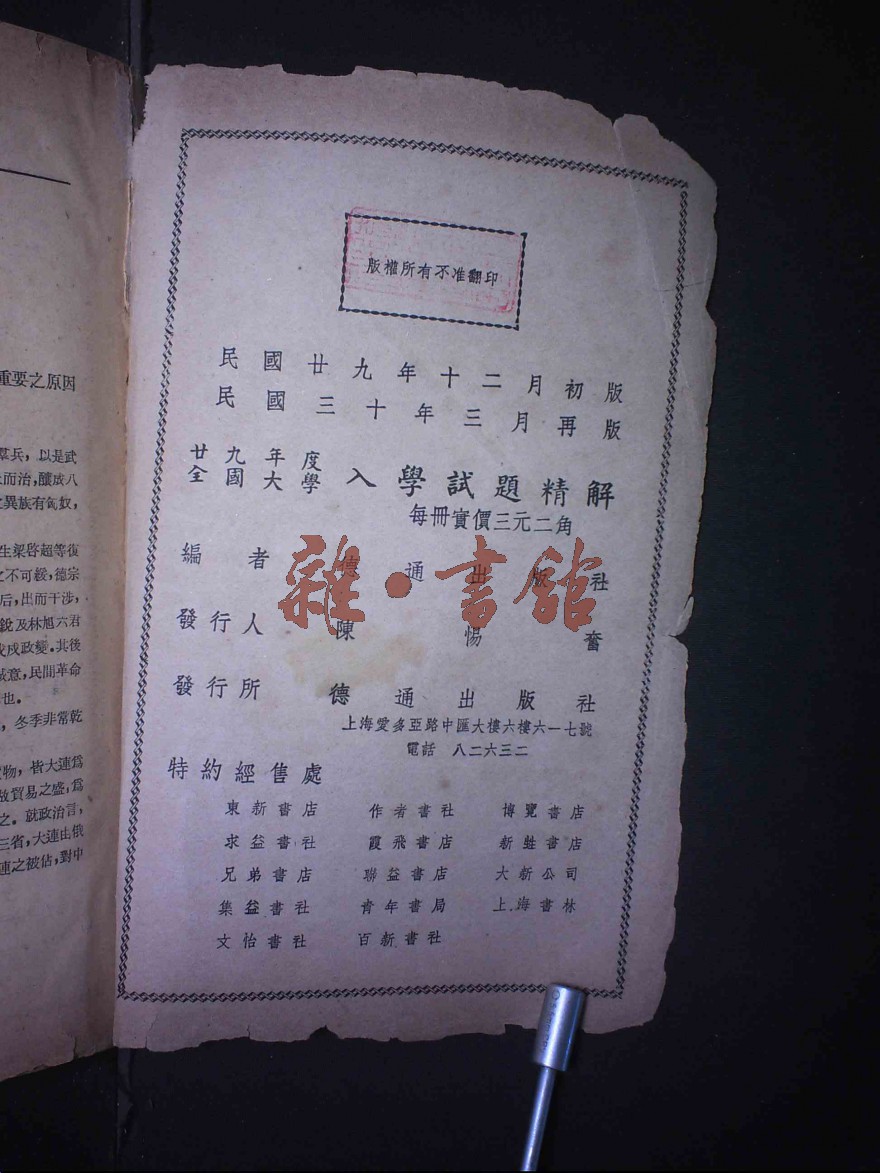 重要之原因
羣兵，以是武
而治，釀成八
異族有匈奴，
生梁啓超等復
之不可緩，德宗
后，出而干涉，
銳及林旭六君
戊戌政變．其後
誠意，民間革命
也．
，冬季非常乾
物，皆大連爲
故貿易之盛，爲
之．就政治言，
三省，大連由俄
連之被佔，對中
版權所有不准翻印
民國廿九年十二月初版
民國三十年三月再版
廿九年度
全國大學
入學試題精解
每冊實價三元二角
編者 德通出版社
發行人 陳惕奮
發行所 德通出版社
上海愛多亞路中匯大樓六樓六一七號
電話 八二六三二
特約經售處
東新書店 作者書社 博覽書店
求益書社 霞飛書店 新甡書店
兄弟書店 聯益書店 大新公司
集益書社 青年書局 上海書林
文怡書社 百新書社
雜·書館